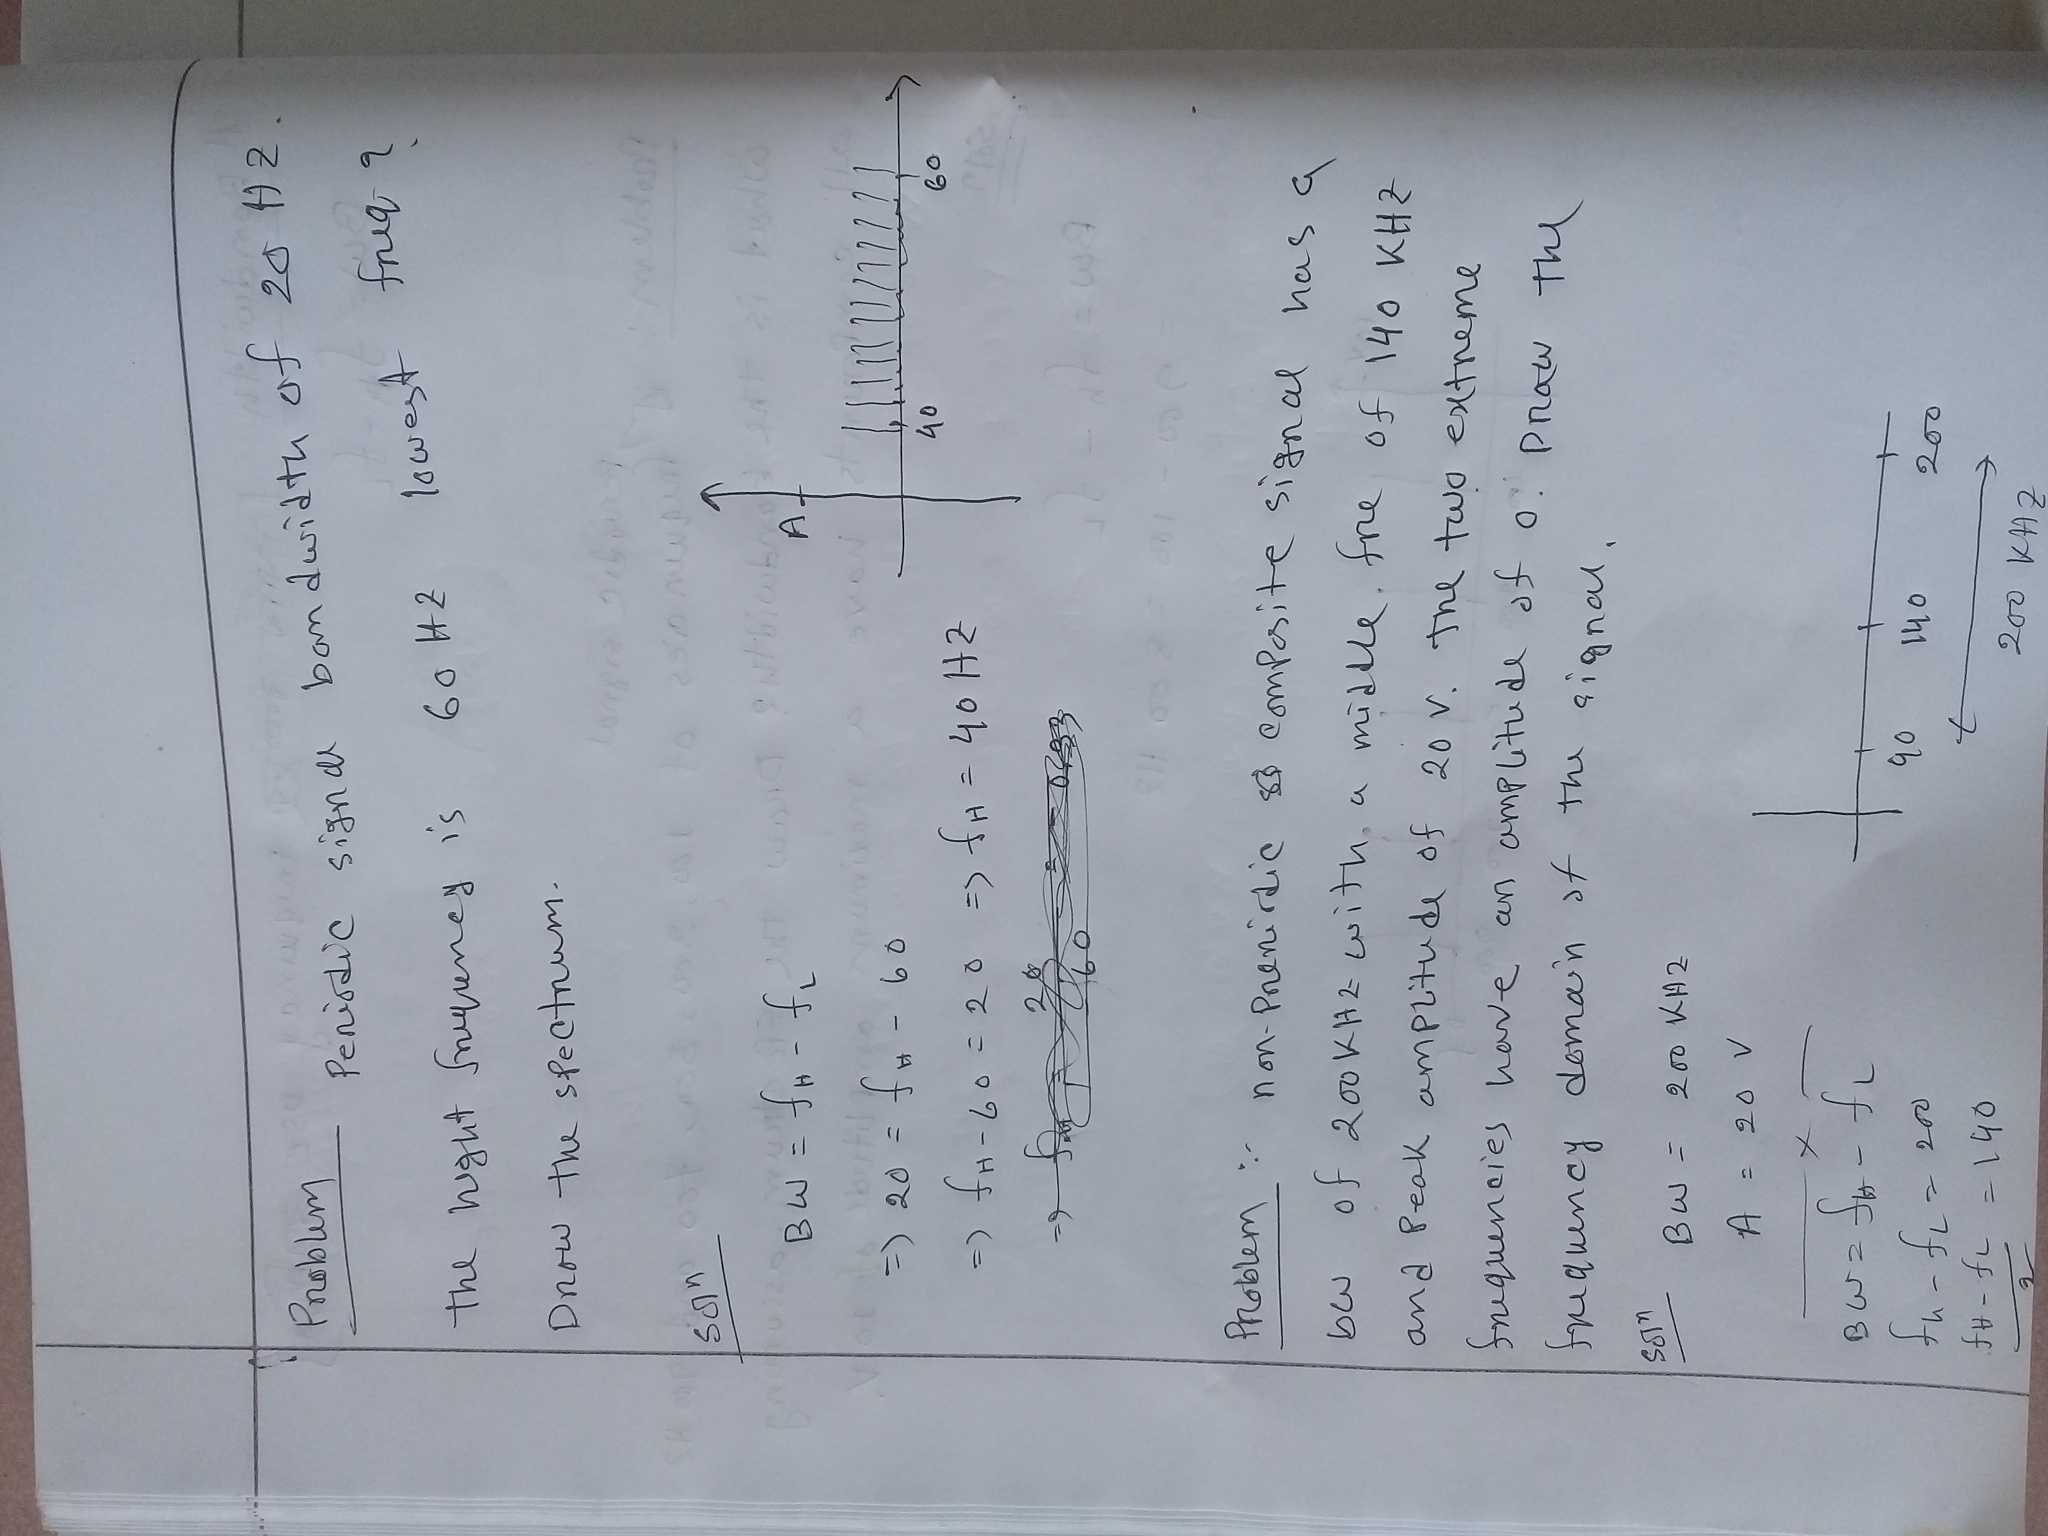 Problem Periodic signal bandwidth of 20 HZ.
the hight frequency is 60 HZ lowest freq ?
Draw the spectrum.
Soln
BW = fH - fL
=> 20 = fH - 60
=> fH - 60 = 20 => fH = 40 HZ
A
40 60
Problem :- non-Prenirdic composite signal has a
bw of 200KHZ with a middle fre of 140 KHZ
and Peak amplitude of 20 V. The two extreme
frequencies have an amplitude of 0. Draw the
frequency domain of the signal.
Soln
BW = 200 KHZ
A = 20 V
x
BW = fH - fL
fh - fL = 200
fH - fL / 2 = 140
90 140 200
200 KHZ